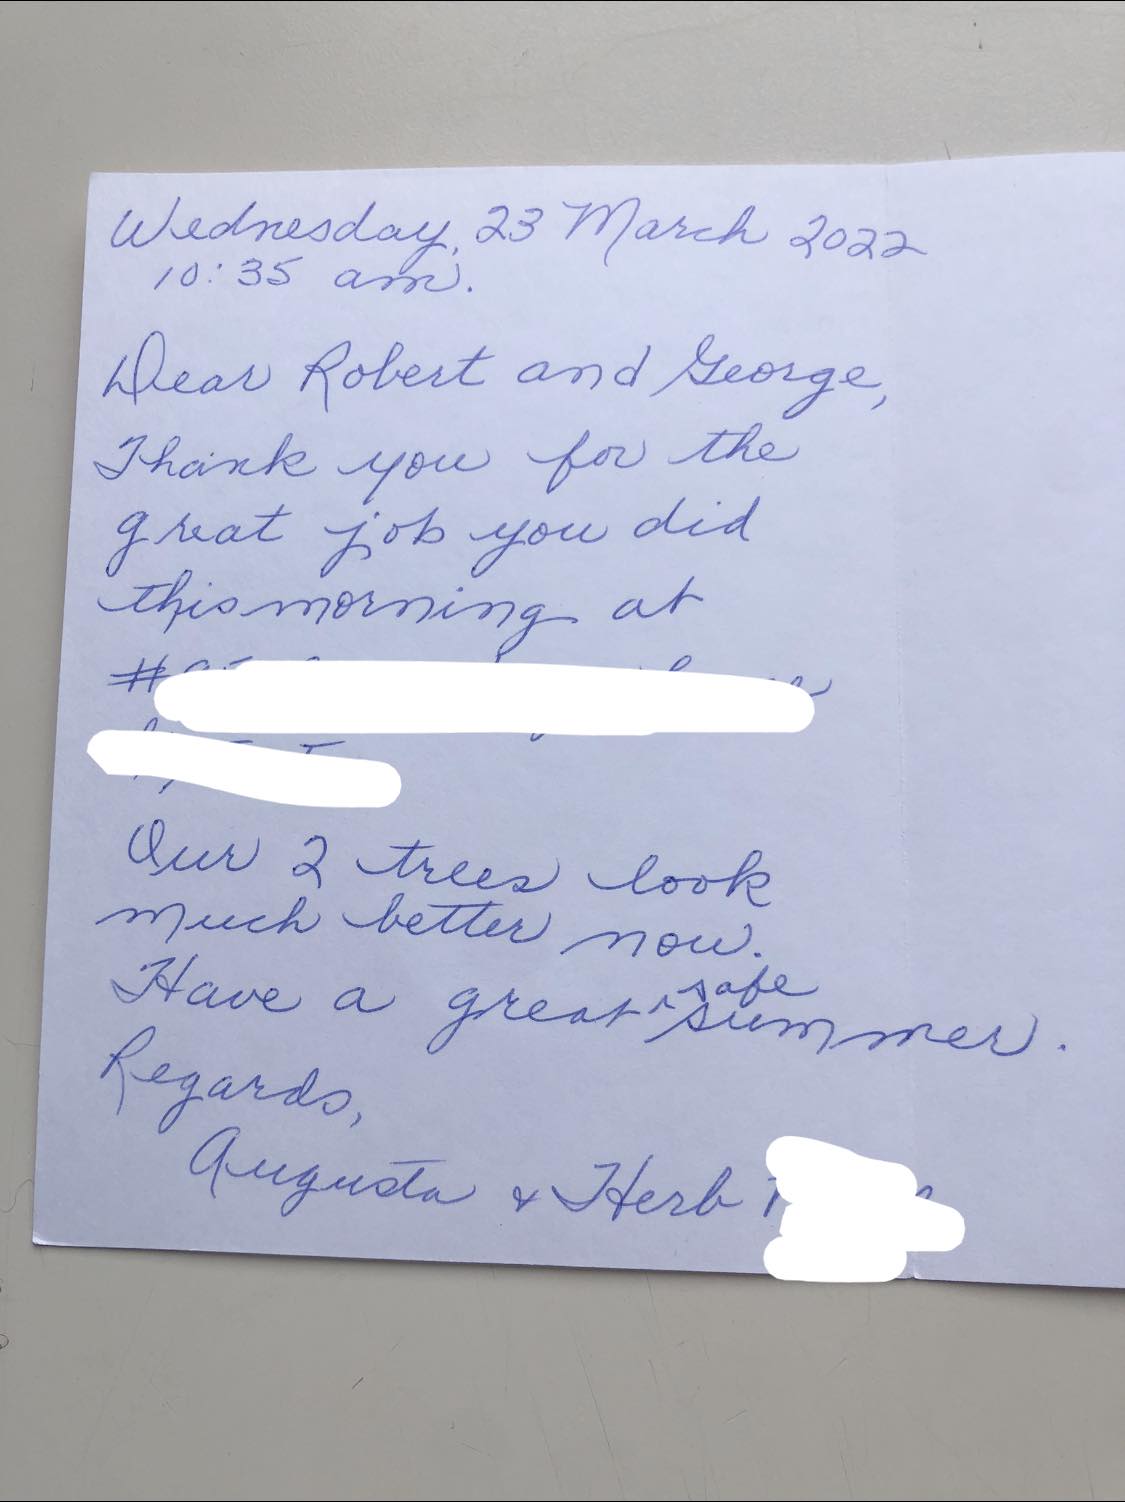 Wednesday, 23 March 2022
10:35 am.
Dear Robert and George,
Thank you for the
great job you did
this morning at
#
Our 2 trees look
much better now.
Have a great ^ safe summer.
Regards,
Augusta & Herb